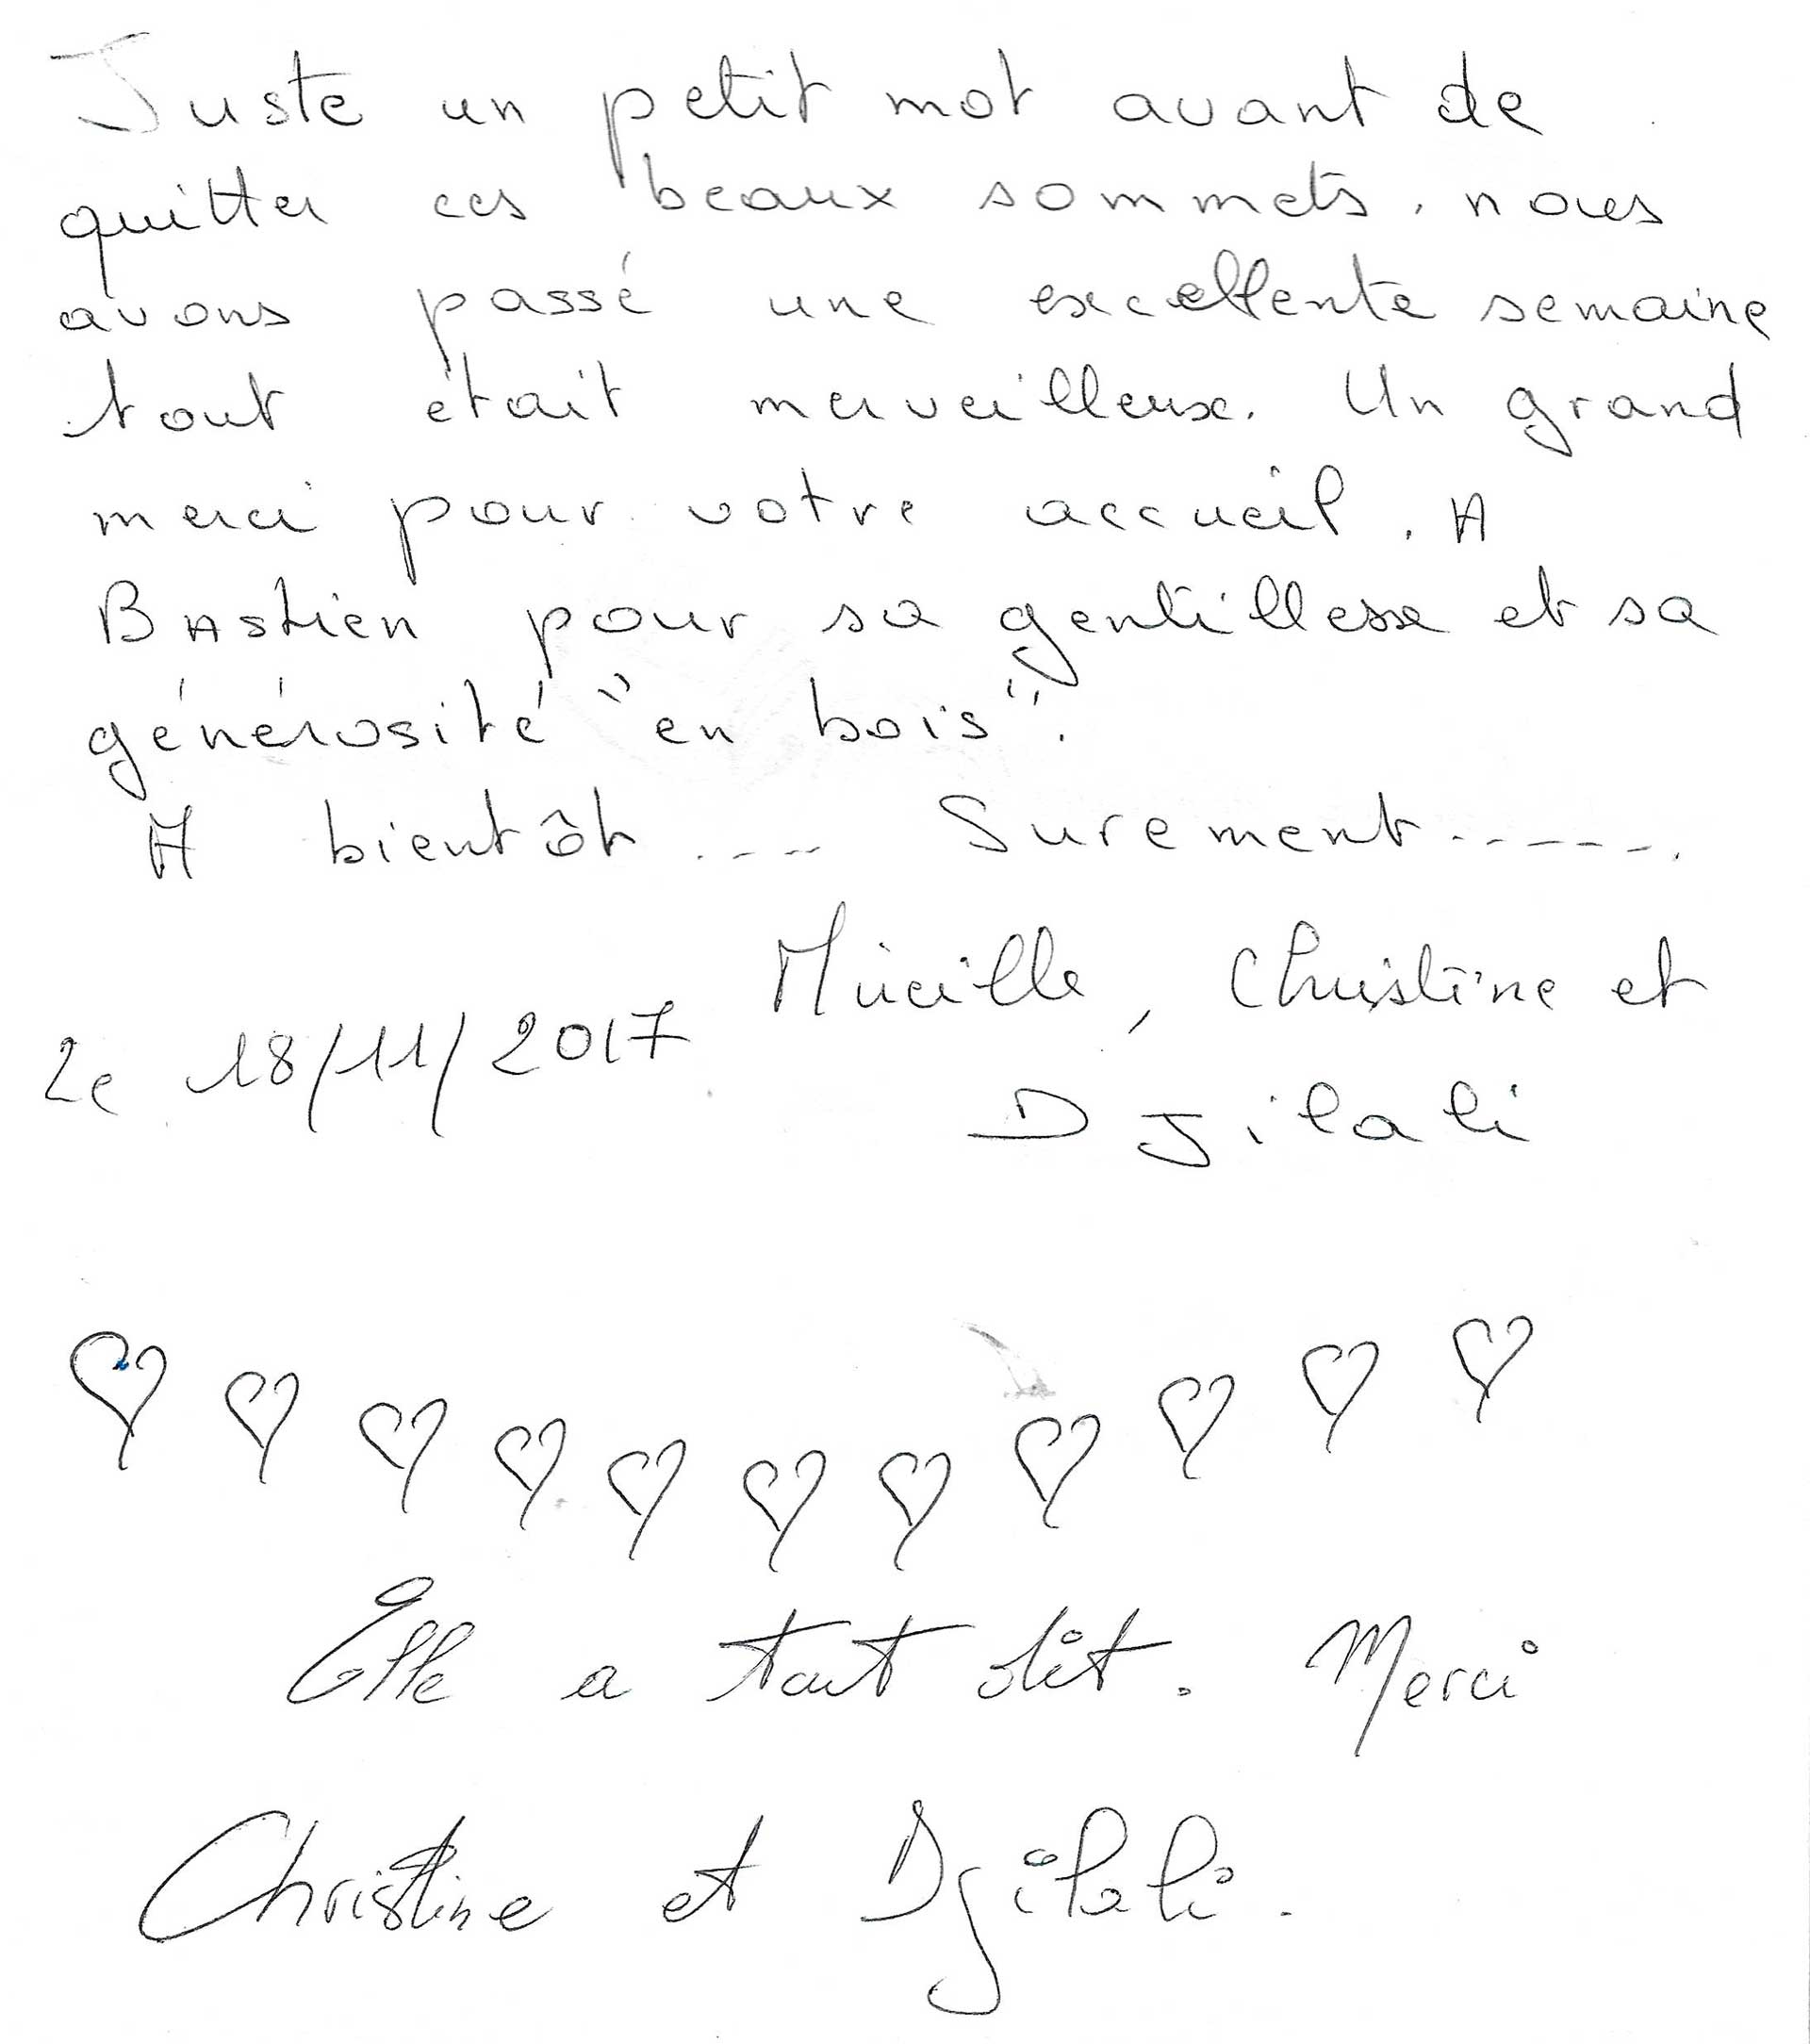 Juste un petit mot avant de
quitter ces beaux sommets. nous
avons passé une excellente semaine
tout était merveilleux. Un grand
merci pour votre accueil. A
Bastien pour sa gentillesse et sa
générosité "en bois".
A bientôt .... Surement ......
Mireille, Christine et
Le 18/11/2017
Djilali
Elle a tout dit. Merci
Christine et Djilali.